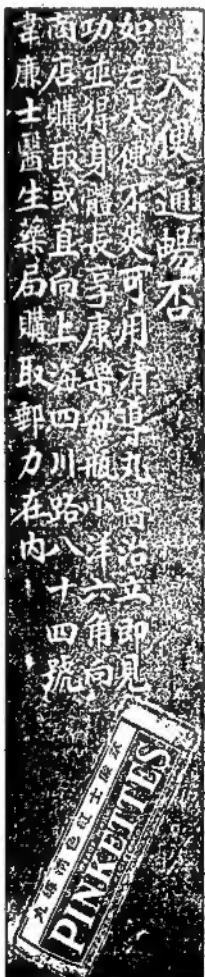 大便通暢否
如若大便不爽可用清導丸醫治立即見
功並得身體長享康樂每瓶小洋六角向
商店購取或直向上海四川路八十四號
韋廉士醫生藥局購取郵力在內
PINKETTES